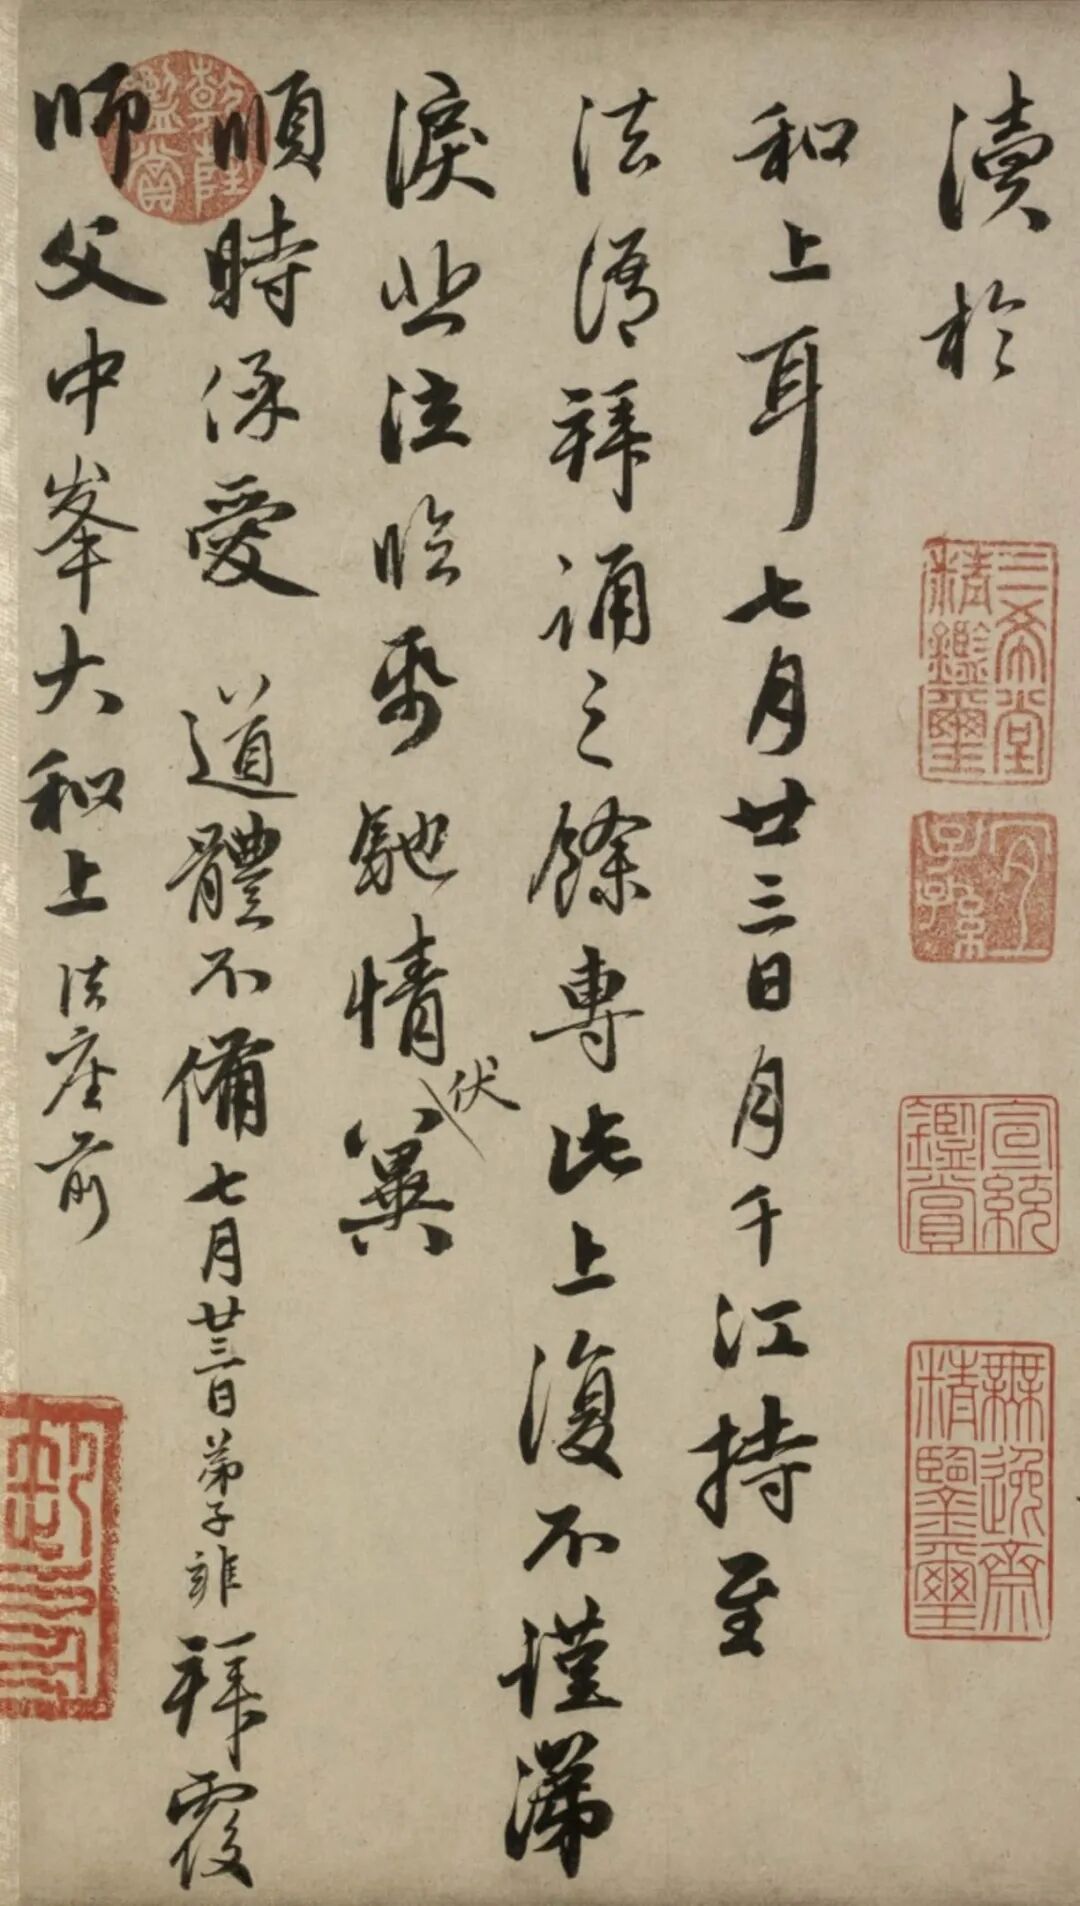 瀆於
和上耳七月廿三日月千江持至
法語拜誦之餘專此上復不謹涕
淚泣臨帋馳情伏冀
順時保愛 道體不備七月廿三日弟子雍拜覆
師父中峯大和上法座前
三希堂精鑑璽
宜子孫
宣統鑑賞
無逸齋精鑒璽
乾隆鑑賞